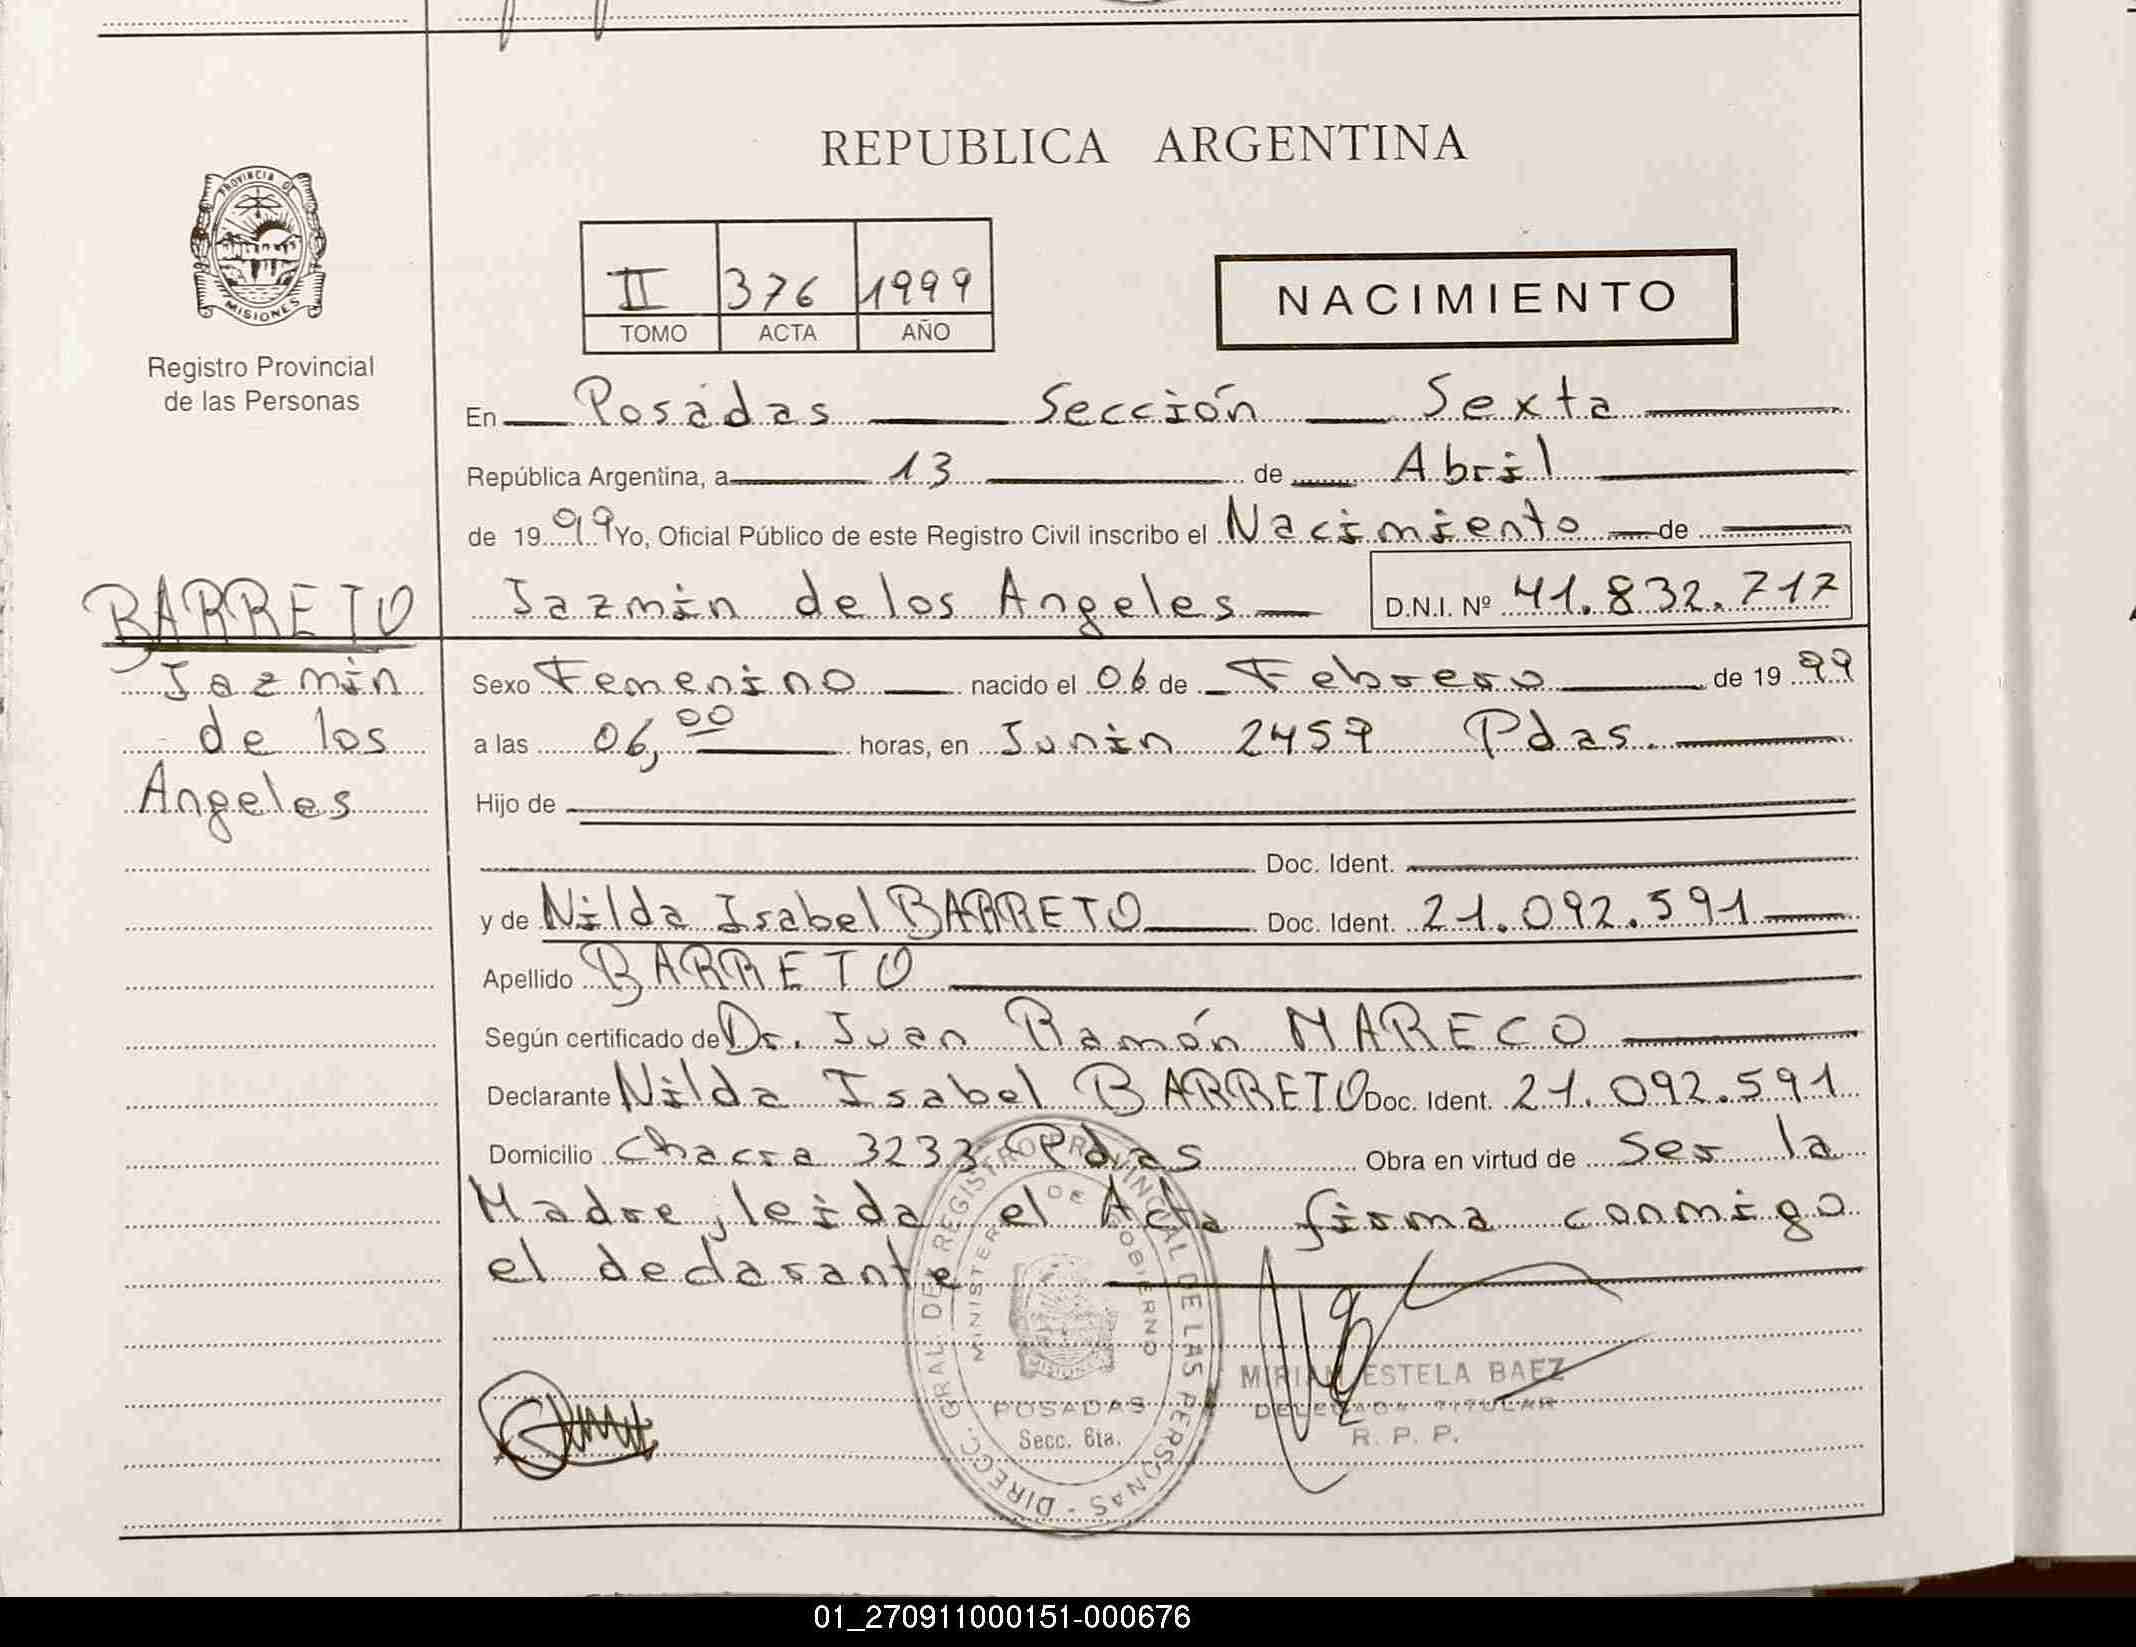 REPUBLICA ARGENTINA
PROVINCIA DE
MISIONES
Registro Provincial
de las Personas
II 376 1999
TOMO ACTA AÑO
NACIMIENTO
En Posadas Sección Sexta
República Argentina, a 13 de Abril
de 1999 Yo, Oficial Público de este Registro Civil inscribo el Nacimiento de
Jazmin de los Angeles D.N.I. Nº 41.832.717
BARRETO
Jazmin
de los
Angeles
Sexo Femenino nacido el 06 de Febrero de 1999
a las 06,00 horas, en Junin 2459 Pdas.
Hijo de
Doc. Ident.
y de Nilda Isabel BARRETO Doc. Ident. 21.092.591
Apellido BARRETO
Según certificado de Dr. Juan Ramón MARECO
Declarante Nilda Isabel BARRETO Doc. Ident. 21.092.591
Domicilio Chacra 3233 Pdas Obra en virtud de Ser la
Madre, leida el Acta firma conmigo
el declarante
DIRECC. GRAL. DE REGISTRO PROVINCIAL DE LAS PERSONAS -
MINISTERIO DE GOBIERNO
MISIONES
POSADAS
Secc. 6ta.
MIRIAM ESTELA BAEZ
DELEGADA TITULAR
R. P. P.
01_270911000151-000676